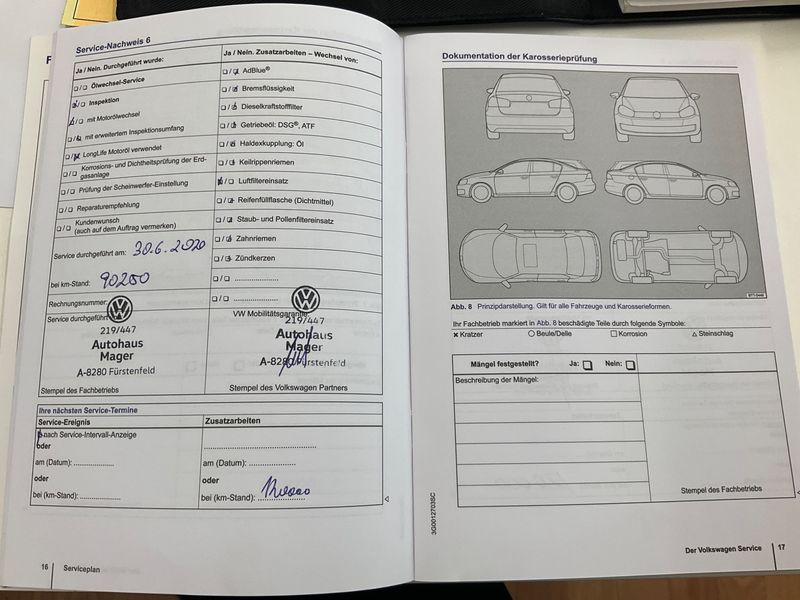 Service-Nachweis 6
Ja / Nein. Durchgeführt wurde:
Ölwechsel-Service
Inspektion
mit Motorölwechsel
mit erweitertem Inspektionsumfang
LongLife Motoröl verwendet
Korrosions- und Dichtheitsprüfung der Erd-
gasanlage
Prüfung der Scheinwerfer-Einstellung
Reparaturempfehlung
Kundenwunsch
(auch auf dem Auftrag vermerken)
Service durchgeführt am: 30.6.2020
bei km-Stand: 90200
Rechnungsnummer:
Service durchgeführt
219/447
Autohaus
Mager
A-8280 Fürstenfeld
Stempel des Fachbetriebs
Ja / Nein. Zusatzarbeiten – Wechsel von:
AdBlue®
Bremsflüssigkeit
Dieselkraftstofffilter
Getriebeöl: DSG®, ATF
Haldexkupplung: Öl
Keilrippenriemen
Luftfiltereinsatz
Reifenfüllflasche (Dichtmittel)
Staub- und Pollenfiltereinsatz
Zahnriemen
Zündkerzen
VW Mobilitätsgarantie
219/447
Autohaus
Mager
A-8280 Fürstenfeld
Stempel des Volkswagen Partners
Ihre nächsten Service-Termine
Service-Ereignis
nach Service-Intervall-Anzeige
oder
am (Datum):
oder
bei (km-Stand):
Zusatzarbeiten
am (Datum):
oder
bei (km-Stand):
16 Serviceplan
Dokumentation der Karosserieprüfung
Abb. 8 Prinzipdarstellung. Gilt für alle Fahrzeuge und Karosserieformen.
Ihr Fachbetrieb markiert in Abb. 8 beschädigte Teile durch folgende Symbole:
× Kratzer ○ Beule/Delle □ Korrosion △ Steinschlag
Mängel festgestellt? Ja: Nein:
Beschreibung der Mängel:
Stempel des Fachbetriebs
3G0012703SC
Der Volkswagen Service 17